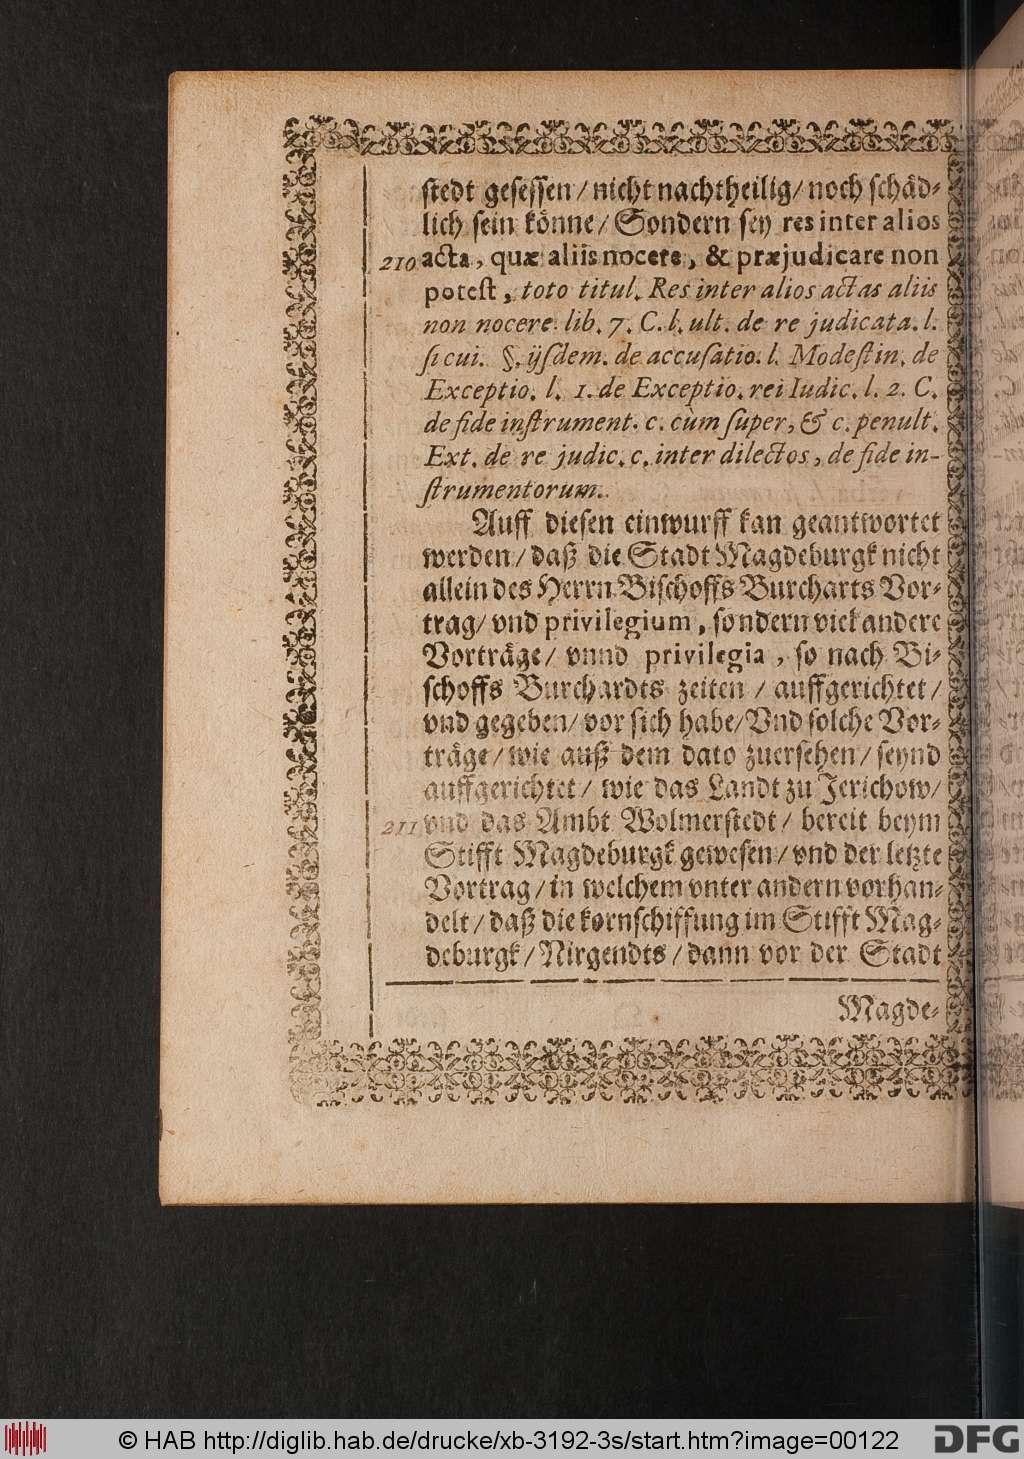 stedt gesessen / nicht nachtheilig / noch schäd-
lich sein könne / Sondern sey res inter alios
210 acta, quæ aliis nocere, & præjudicare non
potest, toto titul. Res inter alios actas aliis
non nocere. lib. 7. C. l. ult. de re judicata. l.
si cui. §. ijsdem. de accusatio. l. Modestin. de
Exceptio. l. 1. de Exceptio. rei Iudic. l. 2. C.
de fide instrument. c. cùm super, & c. penult.
Ext. de re judic. c. inter dilectos, de fide in-
strumentorum.
Auff diesen einwurff kan geantwortet
werden / daß die Stadt Magdeburgk nicht
allein des Herrn Bischoffs Burcharts Vor-
trag / vnd privilegium, sondern viel andere
Vorträge / vnnd privilegia, so nach Bi-
schoffs Burchardts zeiten / auffgerichtet /
vnd gegeben / vor sich habe / Vnd solche Vor-
träge / wie auß dem dato zuersehen / seynd
auffgerichtet / wie das Landt zu Jerichow /
211 vnd das Ambt Wolmerstedt / bereit beym
Stifft Magdeburgk gewesen / vnd der letzte
Vortrag / in welchem vnter andern vorhan-
delt / daß die kornschiffung im Stifft Mag-
deburgk / Nirgendts / dann vor der Stadt
Magde-
© HAB http://diglib.hab.de/drucke/xb-3192-3s/start.htm?image=00122
DFG